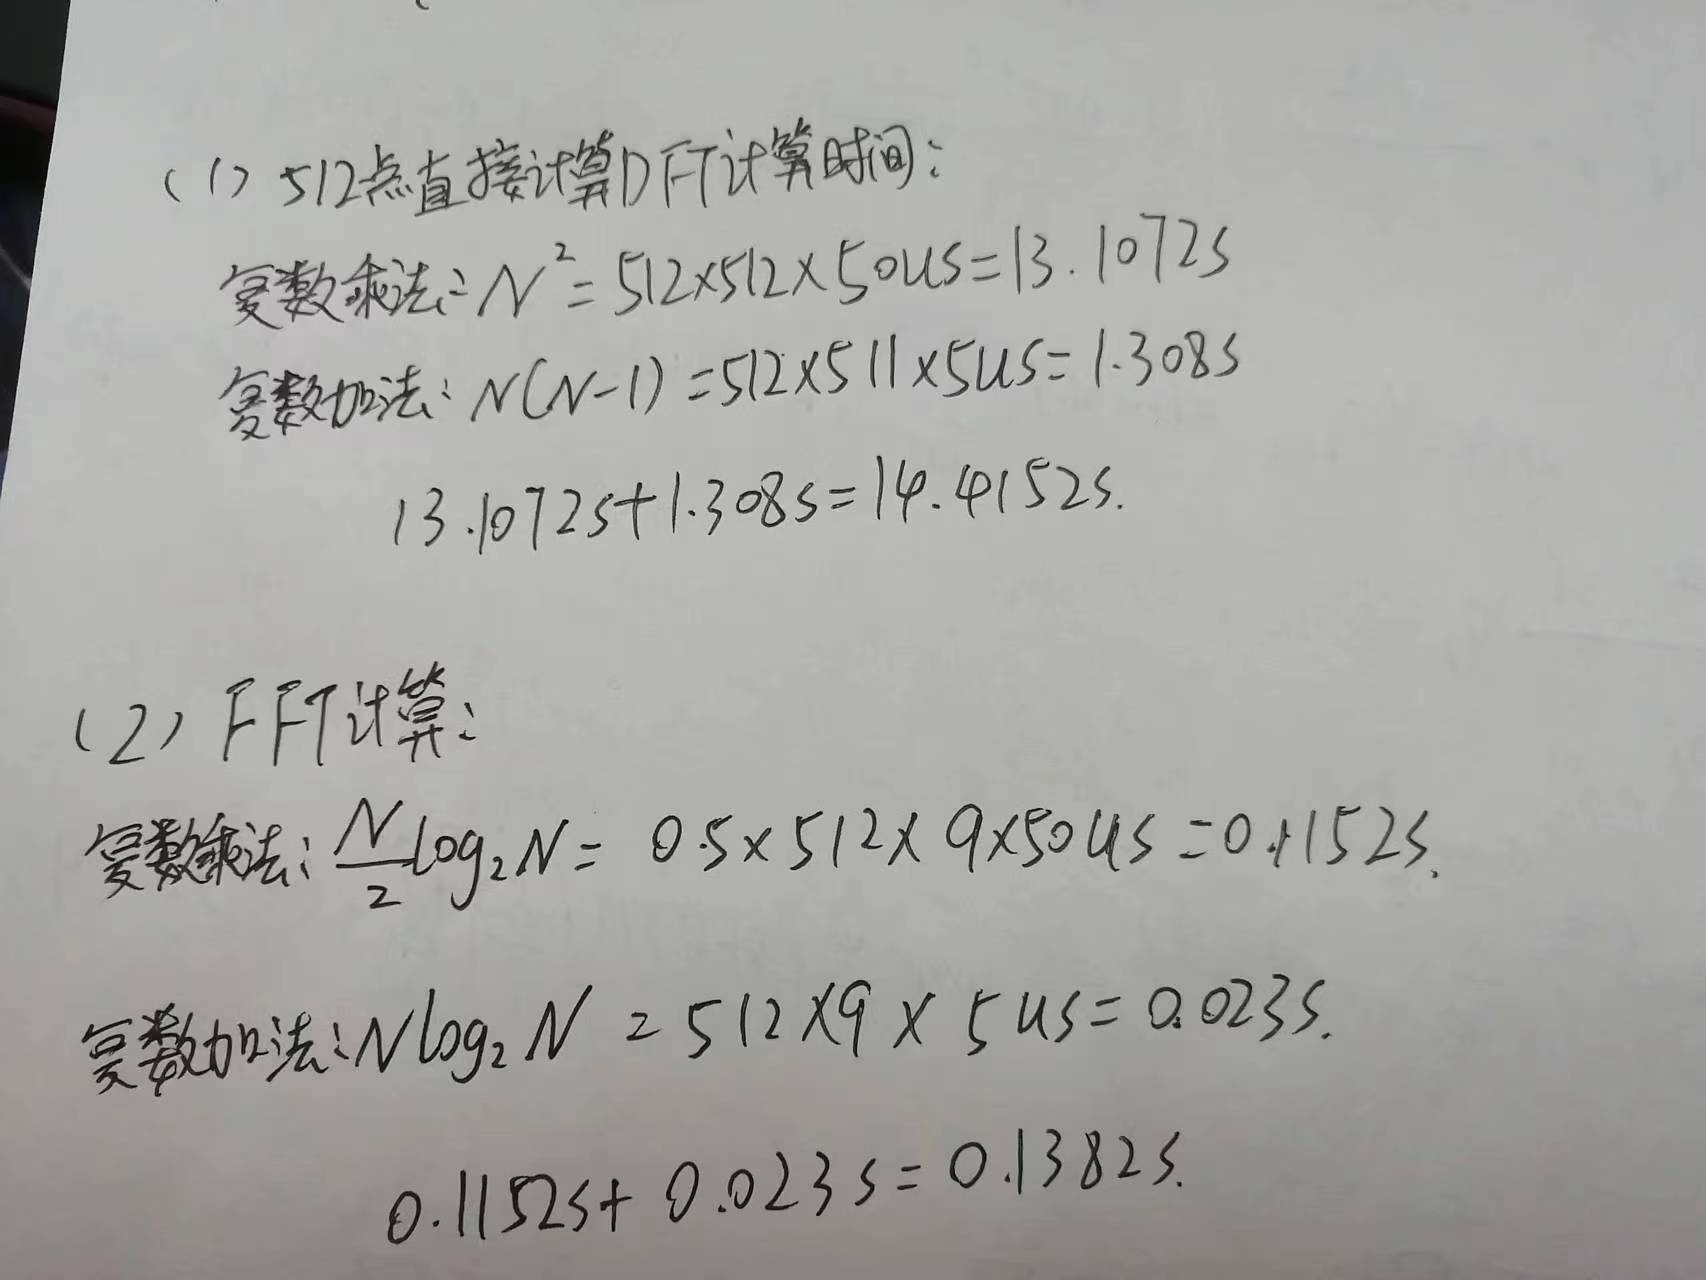 (1) 512点直接计算DFT计算时间:
复数乘法: N² = 512×512×50us=13.1072s
复数加法: N(N-1) =512×511×5us=1.308s
13.1072s+1.308s=14.4152s.
(2) FFT计算:
复数乘法: N/2 log₂N = 0.5×512×9×50us=0.1152s.
复数加法: Nlog₂N = 512×9×5us=0.023s.
0.1152s+0.023s=0.1382s.